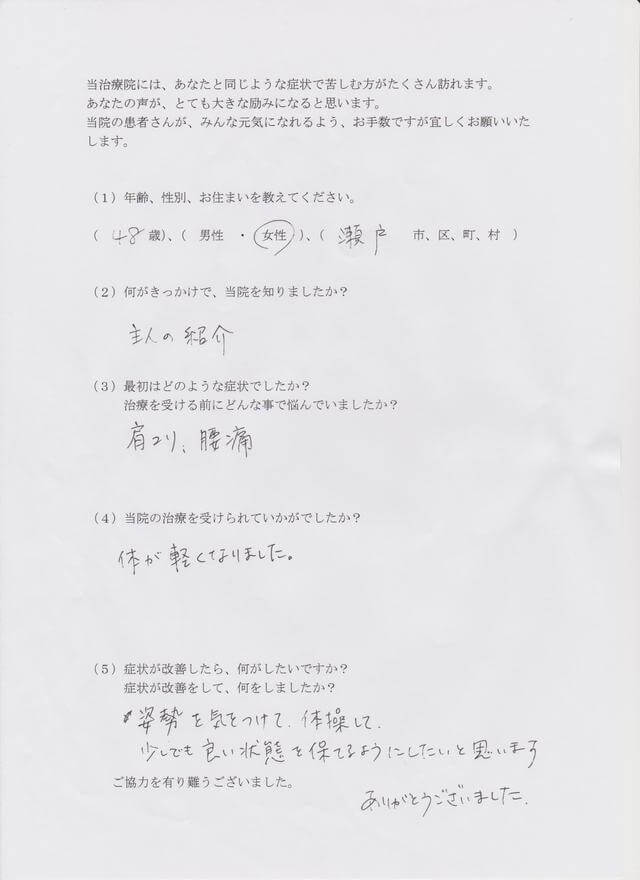 当治療院には、あなたと同じような症状で苦しむ方がたくさん訪れます。
あなたの声が、とても大きな励みになると思います。
当院の患者さんが、みんな元気になれるよう、お手数ですが宜しくお願いいた
します。
（1）年齢、性別、お住まいを教えてください。
（ 48 歳）、（ 男性 ・ 女性 ）、（ 瀬戸 市、区、町、村 ）
（2）何がきっかけで、当院を知りましたか？
主人の紹介
（3）最初はどのような症状でしたか？
治療を受ける前にどんな事で悩んでいましたか？
肩コリ、腰痛
（4）当院の治療を受けられていかがでしたか？
体が軽くなりました。
（5）症状が改善したら、何がしたいですか？
症状が改善をして、何をしましたか？
姿勢を気をつけて、体操して、
少しでも良い状態を保てるようにしたいと思います
ご協力を有り難うございました。
ありがとうございました.